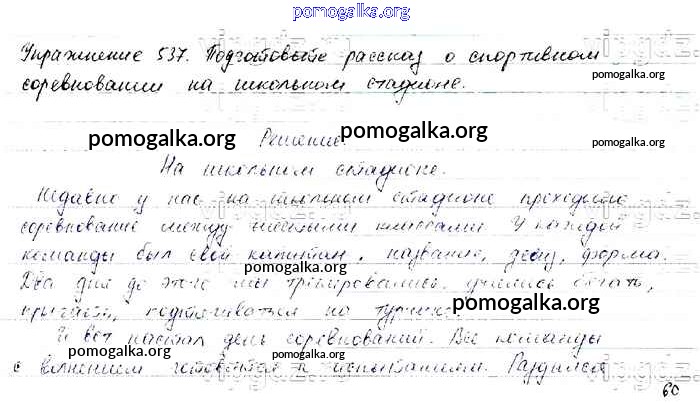 pomogalka.org
Упражнение 537. Подготовьте рассказ о спортивном
pomogalka.org
соревновании на школьном стадионе.
pomogalka.org
Решение.
pomogalka.org
На школьном стадионе.
pomogalka.org
Недавно у нас на школьном стадионе проходило
соревнование между шестыми классами. У каждой
команды был свой капитан, название, девиз, форма.
pomogalka.org
Два дня до этого мы тренировались, учились бегать,
прыгать, подтягиваться на турнике.
pomogalka.org
И вот настал день соревнований. Все команды
pomogalka.org
с волнением готовятся к испытаниям. Раздился
pomogalka.org
60